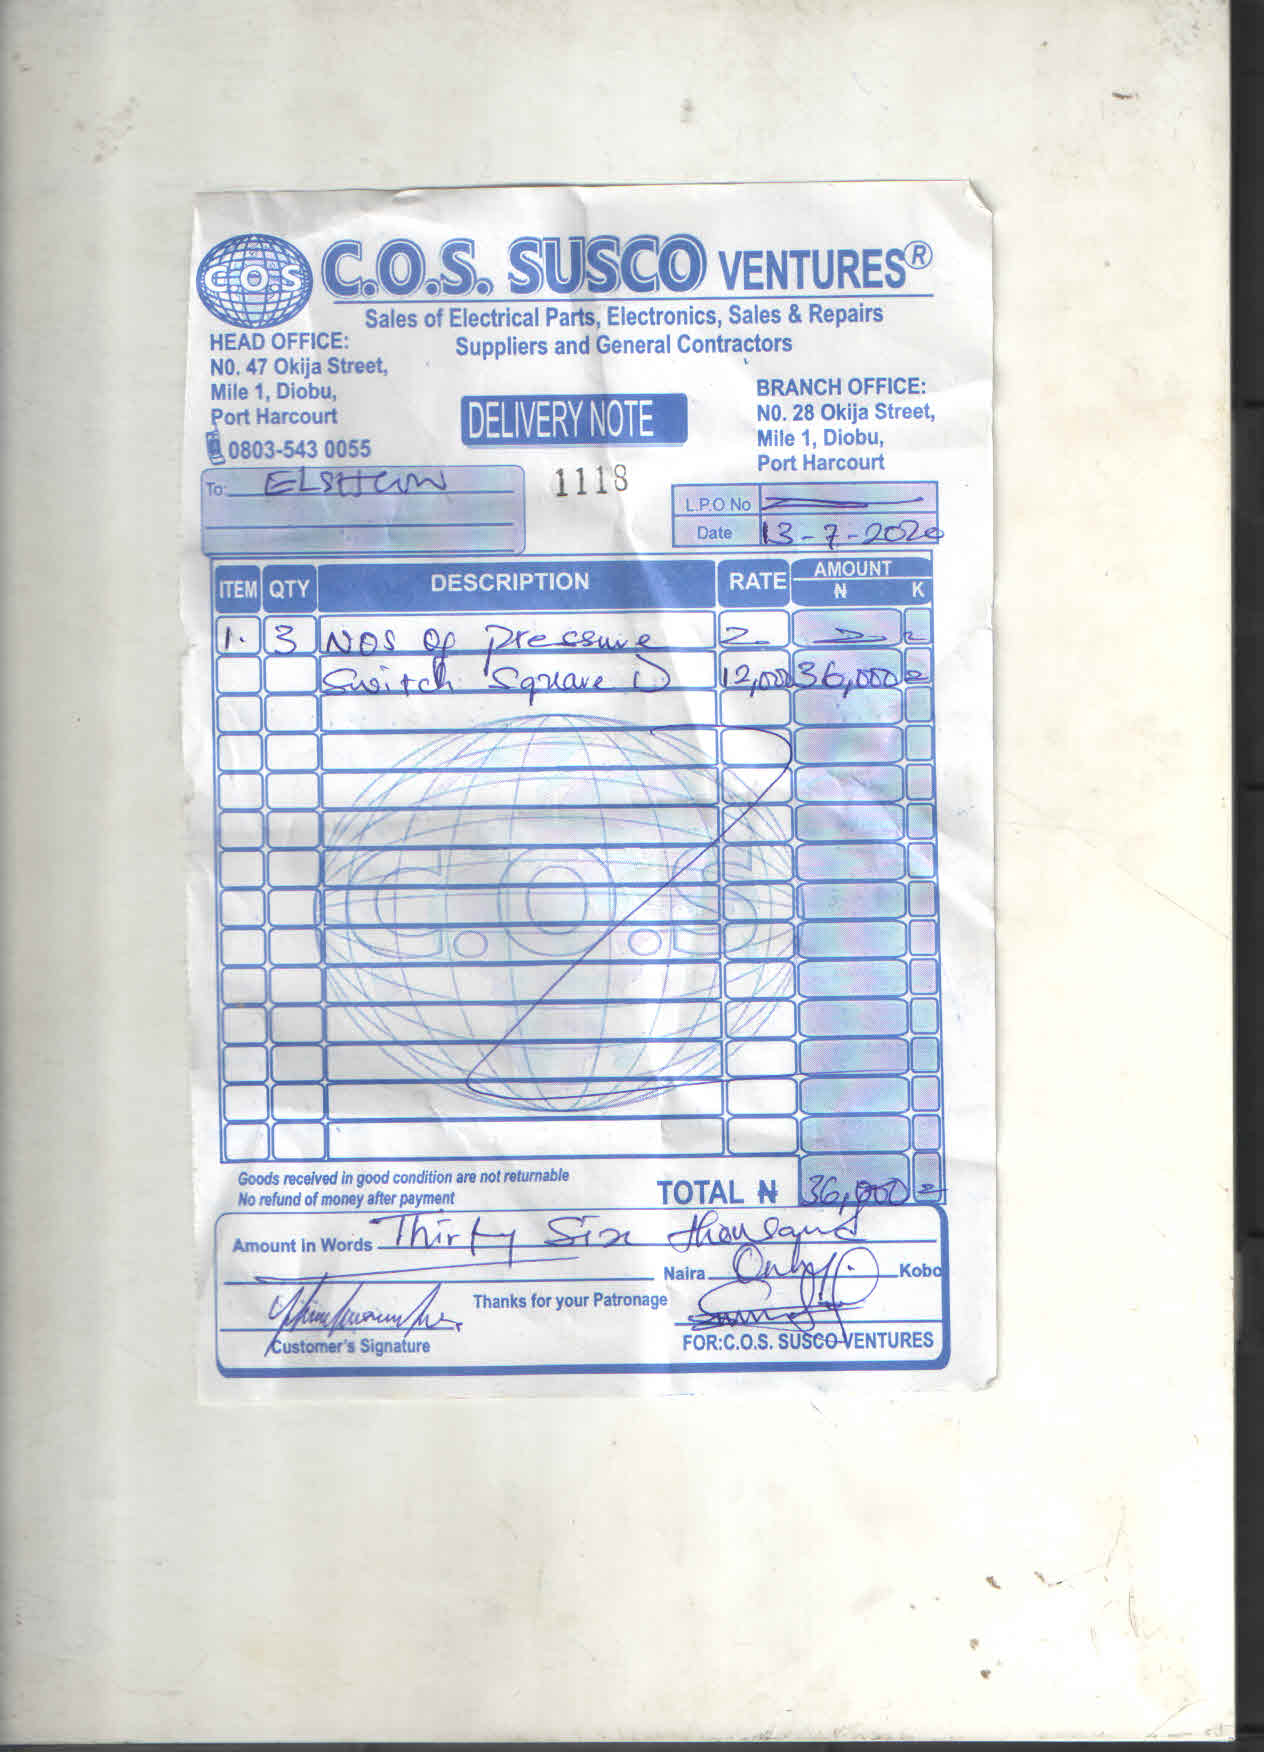 C.O.S
C.O.S. SUSCO VENTURES®
Sales of Electrical Parts, Electronics, Sales & Repairs
Suppliers and General Contractors
HEAD OFFICE:
N0. 47 Okija Street,
Mile 1, Diobu,
Port Harcourt
0803-543 0055
BRANCH OFFICE:
N0. 28 Okija Street,
Mile 1, Diobu,
Port Harcourt
DELIVERY NOTE
1118
To:
L.P.O No
Date 13-7-2020
ITEM QTY DESCRIPTION RATE AMOUNT
₦ K
1. 3 NOS of pressure
Switch Square D 12,000 36,000 =
C.O.S
Goods received in good condition are not returnable
No refund of money after payment
TOTAL ₦ 36,000 =
Amount in Words Thirty Six thousand
Naira Only Kobo
Thanks for your Patronage
Customer's Signature
FOR:C.O.S. SUSCO VENTURES